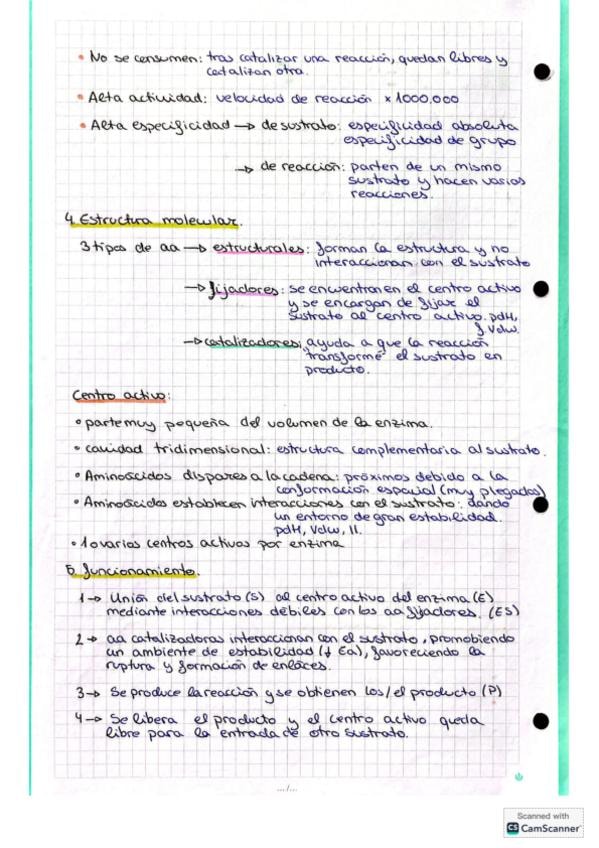 • No se consumen: tras catalizar una reacción, quedan libres y
catalizan otra.
• Alta actividad: velocidad de reacción x1000.000
• Alta especificidad → de sustrato: especificidad absoluta
especificidad de grupo
→ de reacción: parten de un mismo
sustrato y hacen varias
reacciones.
4. Estructura molecular.
3 tipos de aa → estructurales: forman la estructura y no
interaccionan con el sustrato
→ fijadores: se encuentran en el centro activo
y se encargan de fijar el
sustrato al centro activo. pdH,
f Vdw.
→ catalizadores: ayuda a que la reacción
"transforme" el sustrato en
producto.
Centro activo:
• parte muy pequeña del volumen de la enzima.
• cavidad tridimensional: estructura complementaria al sustrato.
• Aminoácidos dispares a la cadena: próximos debido a la
conformación espacial (muy plegados)
• Aminoácidos establecen interacciones con el sustrato: dando
un entorno de gran estabilidad.
pdH, Vdw, II.
• 1 o varios centros activos por enzima
5. Funcionamiento.
1 → Unión del sustrato (S) al centro activo del enzima (E)
mediante interacciones débiles con los aa fijadores. (ES)
2 → aa catalizadores interaccionan con el sustrato, promobiendo
un ambiente de estabilidad (↓ Ea), favoreciendo la
ruptura y formación de enlaces.
3 → Se produce la reacción y se obtienen los/el producto (P)
4 → Se libera el producto y el centro activo queda
libre para la entrada de otro sustrato.
.../...
Scanned with
CS CamScanner